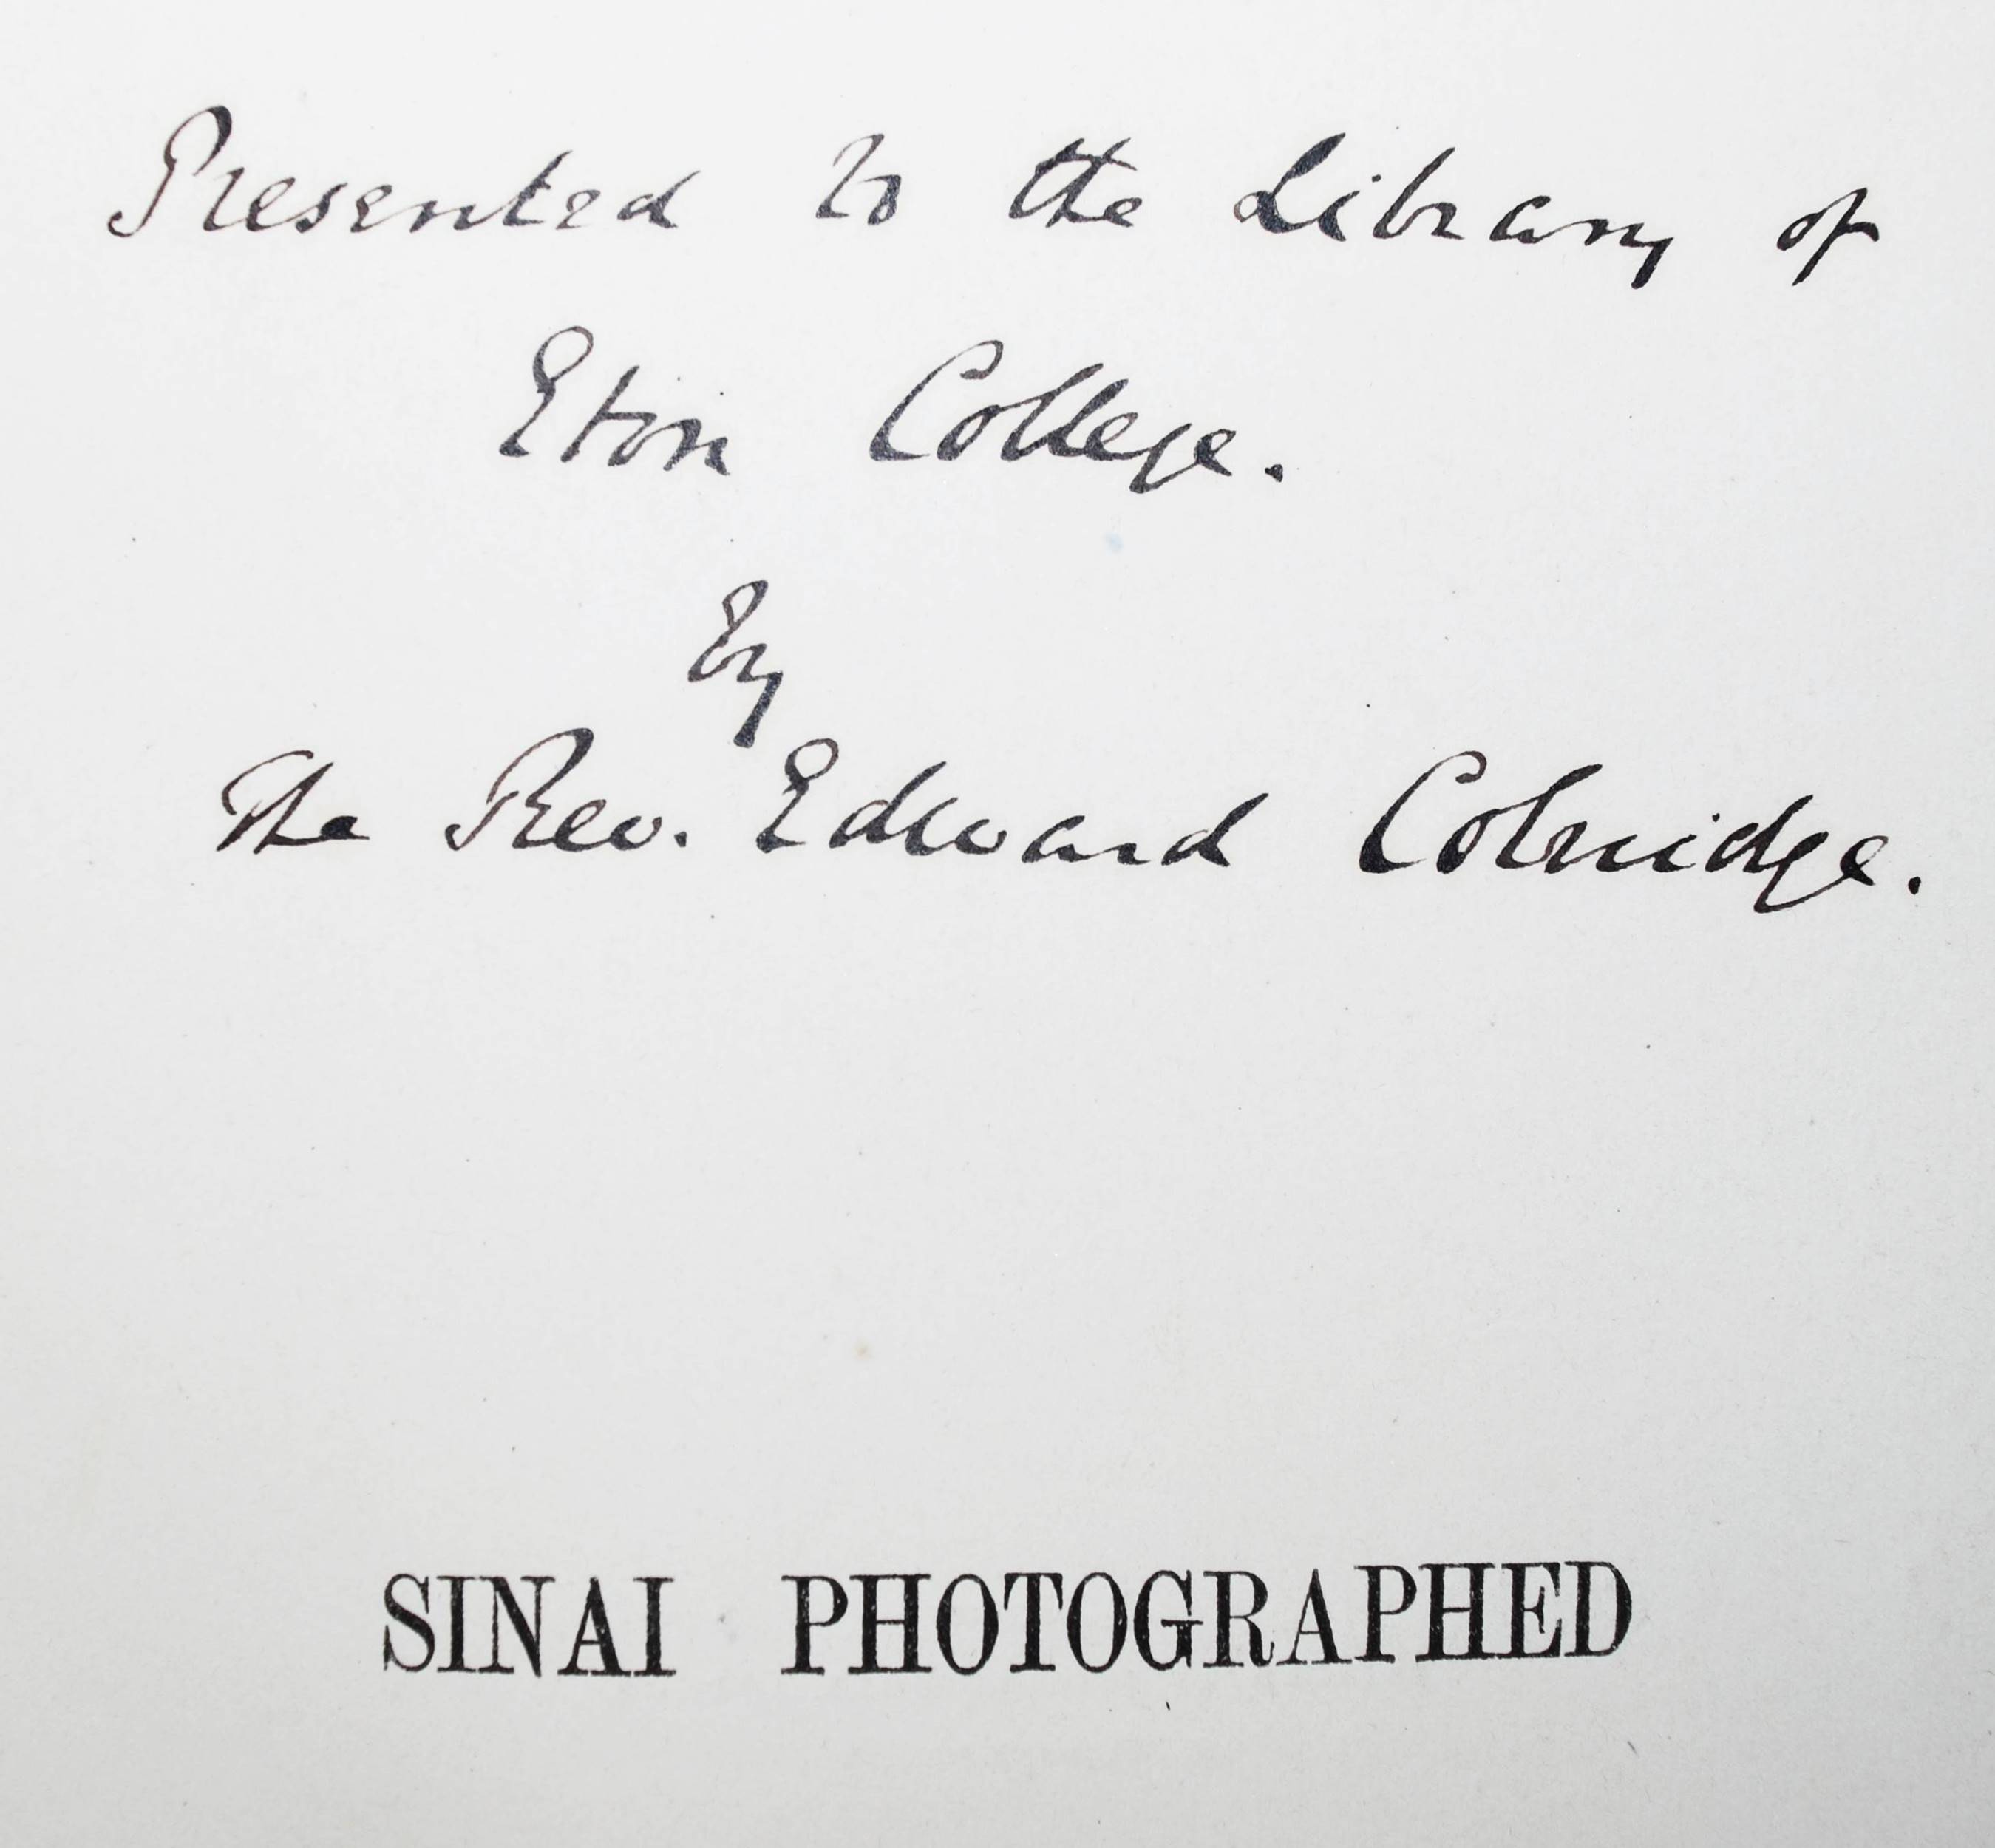 Presented to the Library of
Eton College.
by
The Rev. Edward Coleridge.
SINAI PHOTOGRAPHED